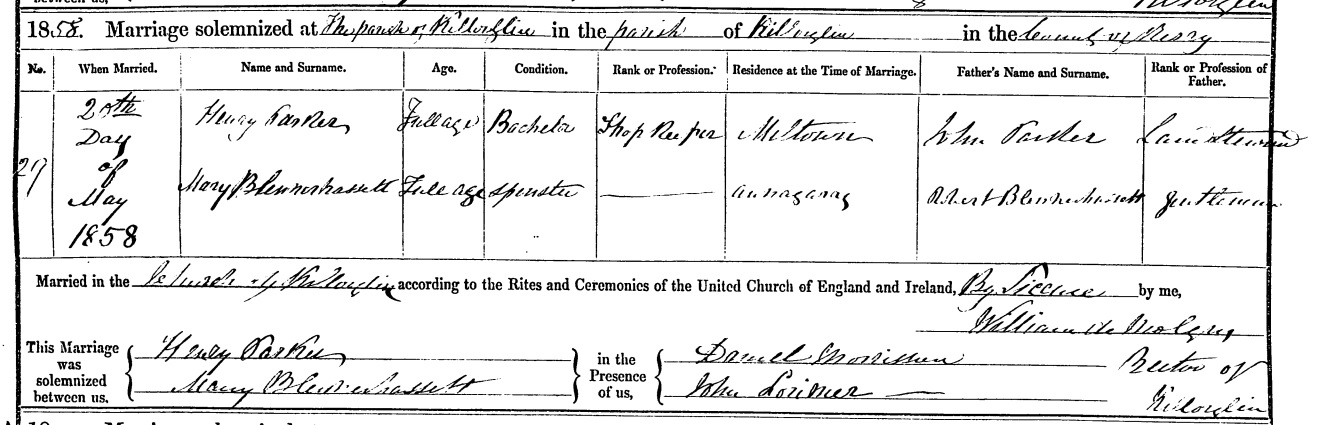 1858. Marriage solemnized at The parish of Killorglin in the parish of Killorglin in the County of Kerry
No. When Married. Name and Surname. Age. Condition. Rank or Profession. Residence at the Time of Marriage. Father's Name and Surname. Rank or Profession of Father.
29 20th Day of May 1858 Henry Parker Full age Bachelor Shop Keeper Miltown John Parker Land Steward
Mary Blennerhassett Full age Spinster Robert Blennerhassett gentleman
Married in the Church of Killorglin according to the Rites and Ceremonies of the United Church of England and Ireland, By License by me,
William de Moleyns,
Rector of Killorglin
This Marriage was solemnized between us, Henry Parker in the Presence of us, Daniel Morrison
Mary Blennerhassett John Lorimer